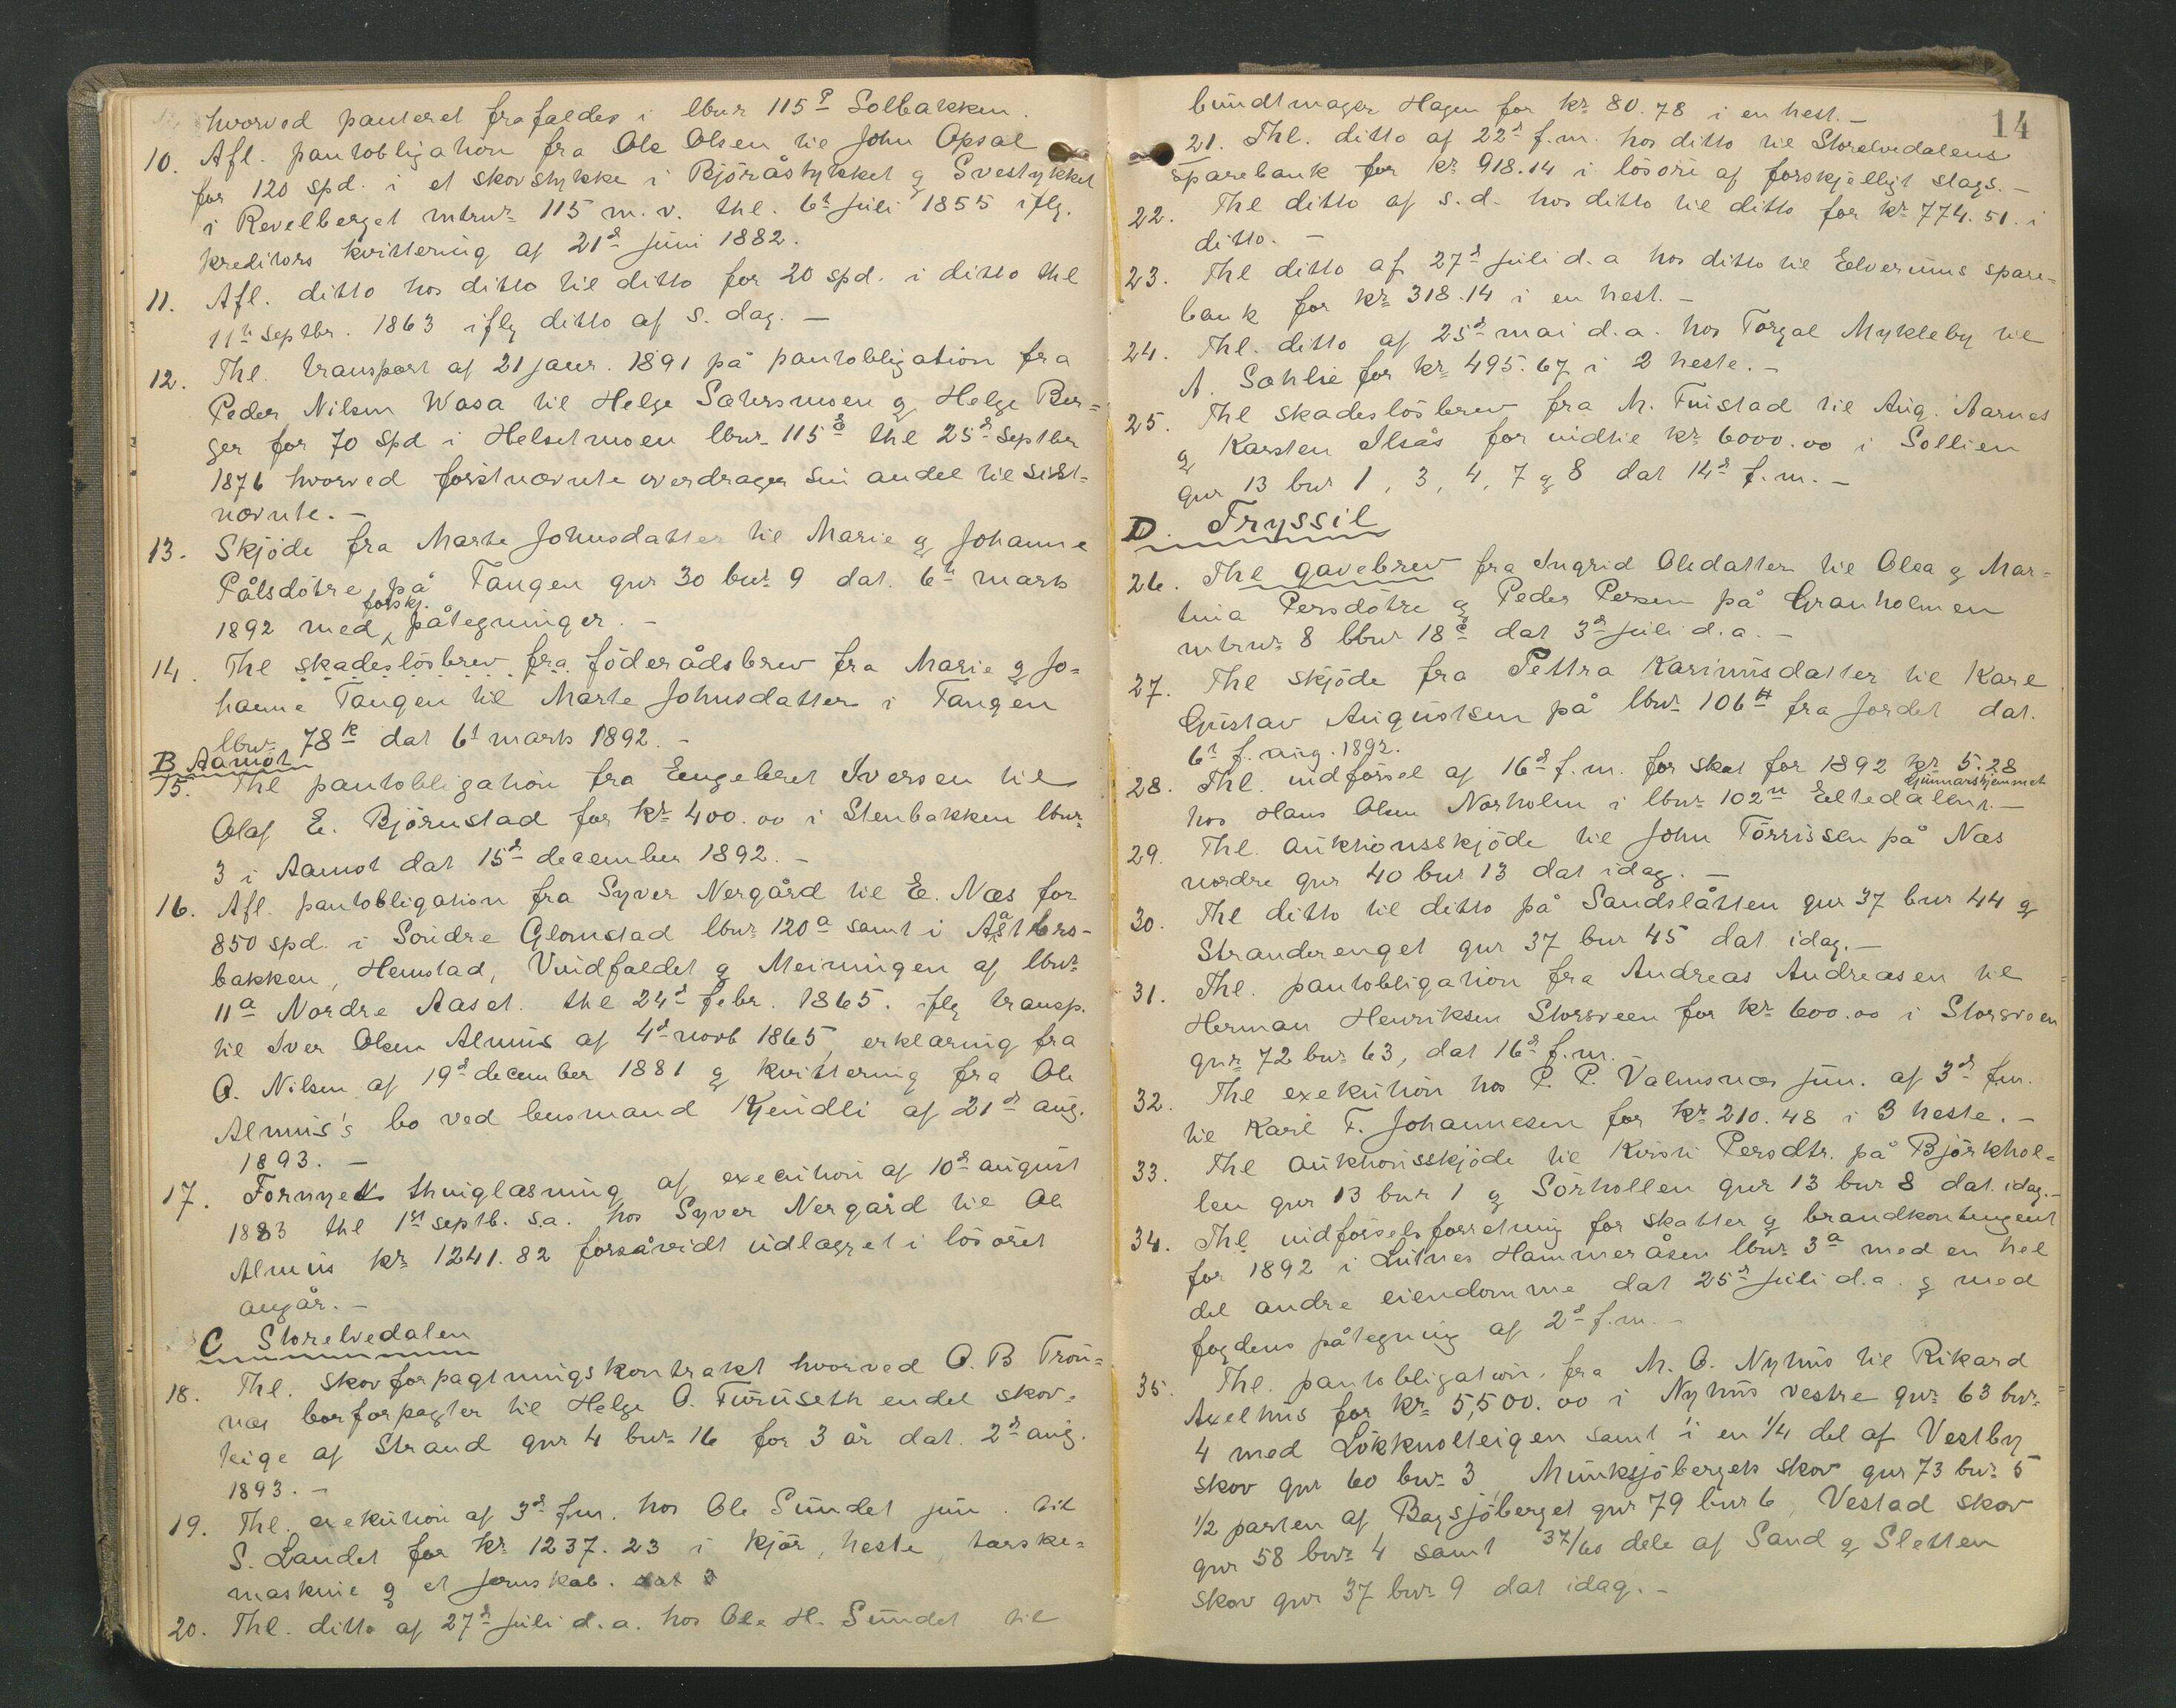 hvorved panteret frafaldes i lbnr 115 P Solbakken.
10. Afl. pantobligation fra Ole Olsen til John Opsal
for 120 spd. i et skovstykke i Björåstykket & Svestykket
i Revelberget mtrnr 115 m. v. thl. 6t juli 1855 iflg.
kreditors kvittering af 21d juni 1882.
11. Afl. ditto hos ditto til ditto for 20 spd. i ditto thl
11te septbr. 1863 iflg ditto af s. dag. –
12. Thl. transport af 21 janr. 1891 på pantobligation fra
Peder Nilsen Wasa til Helge Sætersmoen & Helge Ber=
ger for 70 spd i Helsetmoen lbnr 115 thl 25d septbr
1876 hvorved förstnævnte overdrager sin andel til sist=
nævnte. –
13. Skjöde fra Marte Johnsdatter til Marie & Johanne
Pålsdötre på Tangen gnr 30 bnr 9 dat. 6te marts
forskj.
1892 med påtegninger. –
14. Thl skadeslösbrev fra föderådsbrev fra Marie & Jo=
hanne Tangen til Marte Johnsdatter i Tangen
lbnr 78 k dat 6t marts 1892. –
B Aamot
15. Thl pantobligation fra Engebret Iversen til
Olaf E. Björnstad for kr 400.00 i Stenbakken lbnr
3 i Aamot dat 15d december 1892. –
16. Afl. pantobligation fra Syver Nergård til E. Næs for
850 spd. i Söndre Glomstad lbnr 120 a samt i
bakken, Hemstad, Vindfaldet & Meiningen af lbnr
11 a Nordre Aaset. thl 24d febr. 1865. iflg transp.
til Iver Olsen Almus af 4d novb 1865, erklæring fra
O. Nilsen af 19d december 1881 & kvittering fra Ole
Almus's bo ved lensmand Kjendli af 21d aug.
1893. –
17. Fornyet thinglæsning af execution af 10d august
1883 thl 1st septb. s.a. hos Syver Nergård til Ole
Almus kr 1241.82 forsåvidt udlægget i lösöret
angår. –
C Storelvedalen
18. Thl. skovforpagtningskontrakt hvorved O. B Trön=
næs borforpagter til Helge O. Furuseth endel skov=
teige af Strand gnr 4 bnr 16 for 3 år dat. 2d aug.
1893. –
19. Thl. exekution af 3d f.m. hos Ole Sundet jun. til
S. Landet for kr 1237.23 i kjör, heste, tærske=
maskine & et jernskab.
20. Thl. ditto af 27d juli d.a. hos Ole H. Sundet til
14
bundtmager Hagen for kr 80.78 i en hest. –
21. Thl. ditto af 22d f.m. hos ditto til Storelvedalens
sparebank for kr 918.14 i lösöre af forskjelligt slags. –
22. Thl ditto af s.d. hos ditto til ditto for kr 774.51. i
ditto. –
23. Thl ditto af 27d juli d.a hos ditto til Elverums spare=
bank for kr 318.14 i en hest. –
24. Thl. ditto af 25d mai d.a. hos Torgal Mykleby til
A. Sæhlie for kr 495.67 i 2 heste. –
25. Thl skadeslösbrev fra M. Fuistad til Aug. Aarnes
& Karsten Ilsås for indtil kr 6000.00 i Sollien
gnr 13 bnr 1, 3, 4, 7 & 8 dat 14d f.m. –
D. Tryssil
26. Thl gavebrev fra Ingrid Oledatter til Olea & Mar=
tina Persdötre & Peder Persen på Granholmen
mtrnr 8 lbnr 18 c dat 3d juli d.a. –
27. Thl skjöde fra Pettra Karinusdatter til Karl
Gustav Augustsen på lbnr 106 fra Jordet dat.
6t f. aug. 1892.
28. Thl. indförsel af 16d f.m. for skat for 1892 kr 5.28
Gunnarshjemmet
hos Hans Olsen Norholm i lbnr 102 n Eltedalen. –
29. Thl. auktionsskjöde til John Törrissen på Næs
nordre gnr 40 bnr 13 dat idag. –
30. Thl ditto til ditto på Sandslåtten gnr 37 bnr 44 &
Strandenget gnr 37 bnr 45 dat idag. –
31. Thl. pantobligation fra Andreas Andreasen til
Herman Henriksen Storsveen for kr 600.00 i Storsveen
gnr 72 bnr 63, dat 16d f.m. –
32. Thl exekution hos P. P. Valmsnæs jun. af 3d f.m.
til Karl F. Johannesen for kr 210.48 i 3 heste. –
33. Thl auktionsskjöde til Kirsti Persdtr. på Björkhol=
len gnr 13 bnr 1 & Sörhollen gnr 13 bnr 8 dat. idag. –
34. Thl indförselsforretning for skatter & brandkontingent
for 1892 i Lutnes Hammeråsen lbnr 3 a med en hel
del andre eiendomme dat 25d juli d.a. & med
fogdens påtegning af 2d f.m. –
35. Thl. pantobligation fra M. O. Nyhus til Rikard
Axelhus for kr 5,500.00 i Nyhus vestre gnr 63 bnr
4 med Lökknolteigen samt i en 1/4 del af Vestby
skov gnr 60 bnr 3, Munksjöbergets skov gnr 73 bnr 5
1/2 parten af Bagsjöberget gnr 79 bnr 6, Vestad skov
gnr 58 bnr 4 samt 37/60 dele af Sand & Sletten
skov gnr 37 bnr 9 dat idag. –